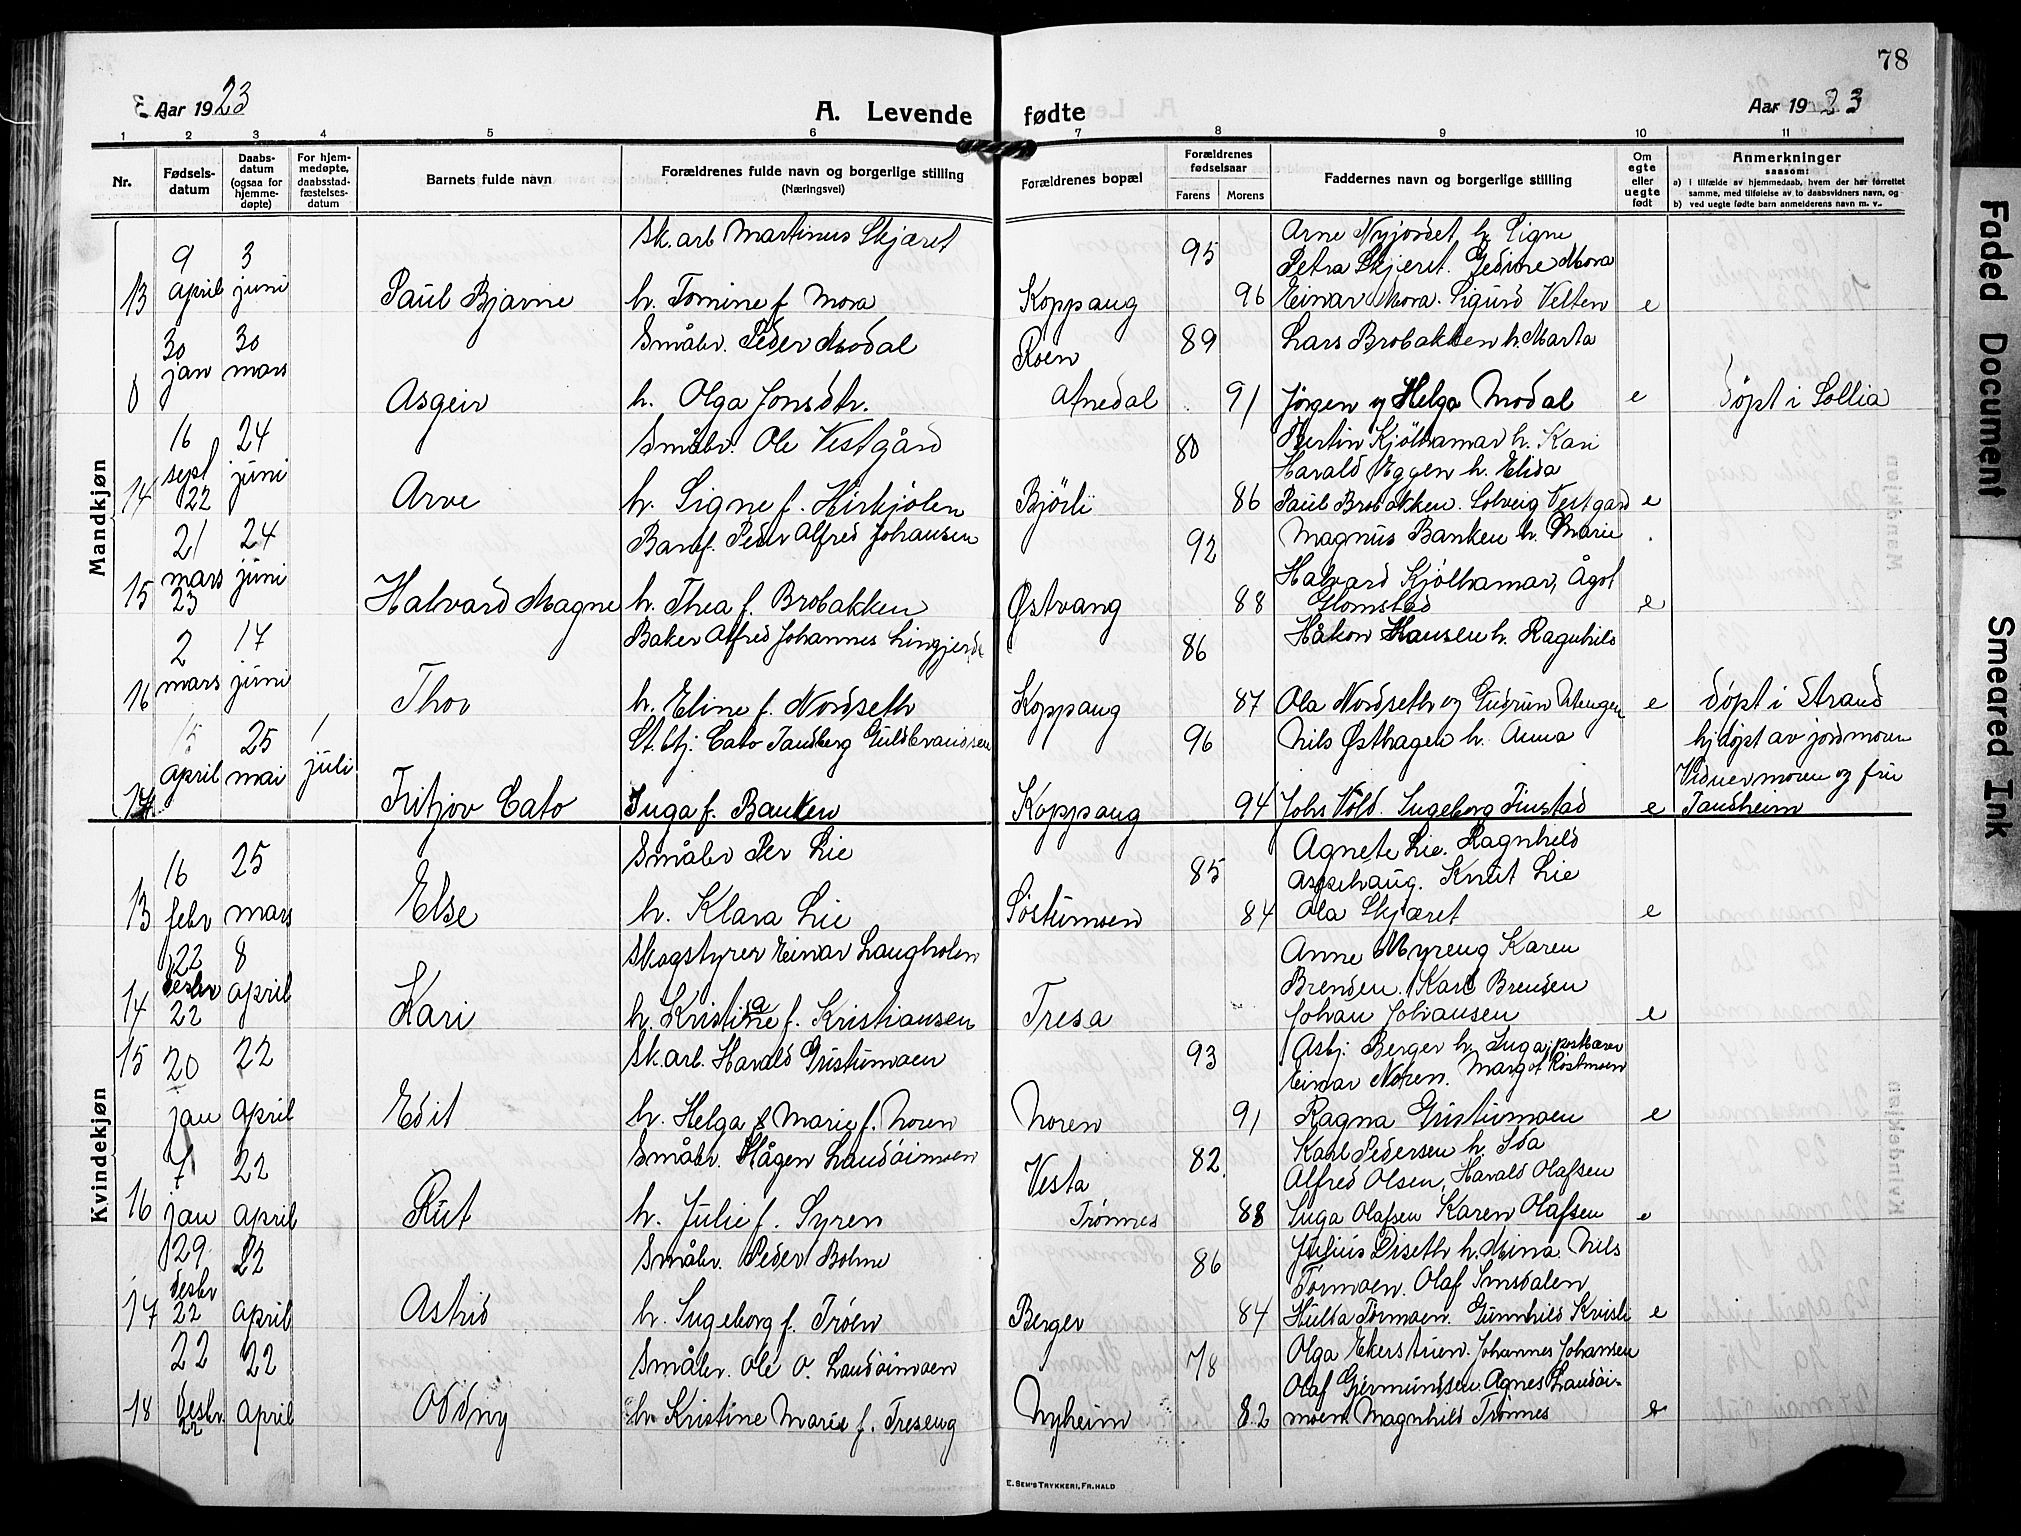 78
Aar 1923
A. Levende fødte
Aar 1923
1 2 3 4 5 6 7 8 9 10 11
Nr.
Fødsels-datum
Daabs-datum (ogsaa for hjemme-døpte)
For hjem-medøpte, daabsstad-fæstelses-datum
Barnets fulde navn
Forældrenes fulde navn og borgerlige stilling (Næringsvei)
Forældrenes bopæl
Forældrenes fødselsaar
Farens Morens
Faddernes navn og borgerlige stilling
Om egte eller uegte født
Anmerkninger
saasom:
a) i tilfælde av hjemmedaab, hvem der har forrettet samme, med tilføielse av to daabsvidners navn, og
b) ved uegte fødte barn anmelderens navn m. v.
Mandkjøn
Sk.arb Martinus Skjæret
Arne Nyjordet h. Signe
9 3 95 Petra Skjeret. Gedine Mora
13 april juni Paul Bjarne h. Tomine f. Mora Koppang 96 Einar Mora. Sigurd Velten e
30 30 Småbr. Peder Modal Roen 89 Lars Brobakken h. Marta
jan mars
8 Asgeir h. Olga Jonsdtr. Atnedal 91 Jørgen og Helga Modal e døpt i Sollia
16 24 Småbr. Ole Vestgård 80 Bertin Kjølhamar h. Kari
sept juni Harald Eggen h. Elida
14 22 Arve h. Signe f. Kirkjølen Bjørli 86 Paul Brobakken. Solveig Vestgard e
21 24 Banef. Peder Alfred Johansen 92 Magnus Banken h. Marie
mars juni Halvard Kjølhamar, Ågot
15 23 Halvard Magne h. Thea f. Brobakken Østvang 88 Glomstad e
2 17 Baker Alfred Johannes Lingjerde 86 Håkon Hansen h. Ragnhild
16 mars juni Thor h. Eline f. Nordseth Koppang 87 Ola Nordseth og Gudrun Utengen e døpt i Strand
15 25 1 St.btj. Cato Tandberg Guldbrandsen 96 Nils Østhagen h. Anna hj.døpt av jordmoren
april mai juli Vidner moren og fru
17 Fritjov Cato Inga f. Banken Koppang 94 Johs Vold. Ingeborg Finstad e Tandheim
Kvindekjøn
Småbr Per Lie Agnete Lie. Ragnhild
16 25 85 Asselhaug. Knut Lie
13 febr mars Else h. Klara Lie Søstumoen 84 Ola Skjæret e
22 8 Skogstyrer Einar Langholen Anne Myreng Karen
desbr april Brenden. Karl Brenden
14 22 Kari h. Kristiane f. Kristiansen Tresa Johan Johansen e
15 20 22 Sk.arb. Harald Gristumoen 93 Asbj. Berger h. Inga,
Einar Noren. Margot Røstmoen
jan april Edit h. Helga Marie f. Noren Noren 91 Ragna Gristumoen e
7 22 Småbr. Hågen Landåimoen Vesta 82 Karl Pedersen h. Ida
Alfred Olsen, Harald Olafsen
16 jan april Rut h. Julie f. Syren Trønnes 88 Inga Olafsen Karen Olafsen e
29 22 Småbr. Peder Bolme 86 Julius Diseth h. Mina Nils
desbr Tørmoen. Olaf Imsdalen
17 22 april Astrid h. Ingeborg f. Trøen Berger 84 Hulda Tørmoen. Gunnhild Kvisli e
22 22 Småbr. Ole O. Landåimoen 78 Olga Ekerstrien. Johannes Johansen
Olaf Gjermundsen. Agnes Landåi-
18 desbr 22 april Oddny h. Kristine Marie f. Treseng Nyheim 82 moen. Magnhild Trønnes e
E. SEM'S TRYKKERI, FR.HALD
Faded Document
Smeared Ink